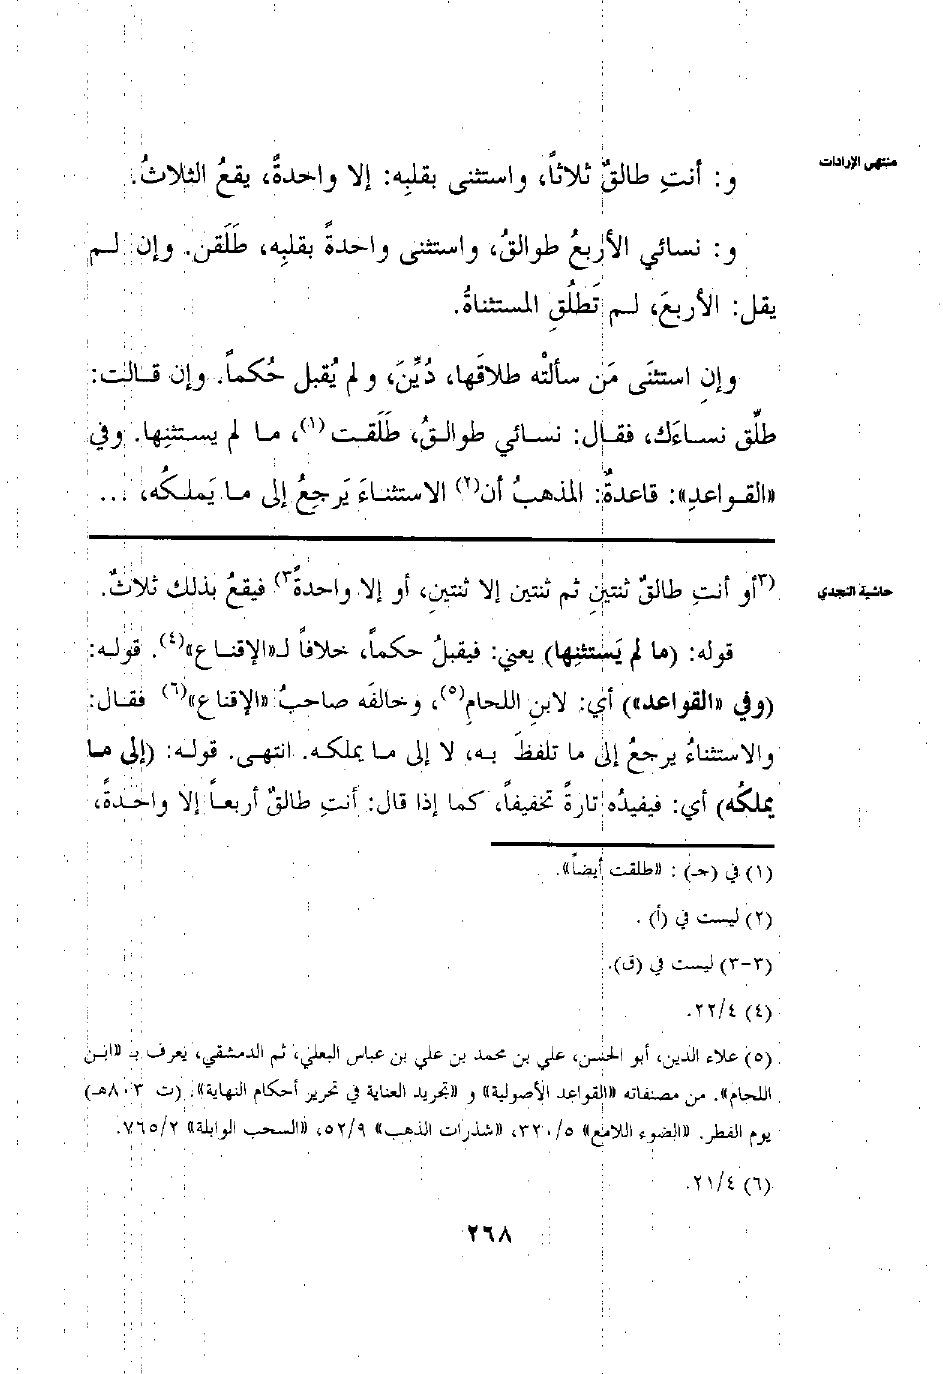 منتهى الإرادات
و: أنتِ طالقٌ ثلاثاً، واستثنى بقلبِه: إلا واحدةً، يقعُ الثلاثُ.
و: نسائي الأربعُ طوالقُ، واستثنى واحدةً بقلبِه، طَلَقن. وإن لم
يقل: الأربعَ، لم تَطلُقِ المستثناةُ.
وإنِ استثنَى مَن سألتْه طلاقَها، دُيِّنَ، ولم يُقبل حُكماً. وإن قالت:
طلِّق نساءَك، فقال: نسائي طوالقُ، طَلَقت(١)، ما لم يستثنِها. وفي
«القواعدِ»: قاعدةٌ: المذهبُ أن(٢) الاستثناءَ يَرجعُ إلى ما يَملكُه، ...
حاشية النجدي
(٣أو أنتِ طالقٌ ثنتينِ ثم ثنتين إلا ثنتينِ، أو إلا واحدةً٣) فيقعُ بذلك ثلاثٌ.
قوله: (ما لم يَستثنِها) يعني: فيقبلُ حكماً، خلافاً لـ«الإقناع»(٤). قوله:
(وفي «القواعد») أي: لابنِ اللحامِ(٥)، وخالفَه صاحبُ «الإقناع»(٦) فقال:
والاستثناءُ يرجعُ إلى ما تلفظَ به، لا إلى ما يملكه. انتهى. قوله: (إلى ما
يملكُه) أي: فيفيدُه تارةً تخفيفاً، كما إذا قال: أنتِ طالقٌ أربعاً إلا واحدةً،
(١) في (جـ) : «طلقت أيضاً».
(٢) ليست في (أ) .
(٣-٣) ليست في (ق).
(٤) ٢٢/٤.
(٥) علاء الدين، أبو الحسن، علي بن محمد بن علي بن عباس البعلي، ثم الدمشقي، يعرف بـ «ابن
اللحام». من مصنفاته «القواعد الأصولية» و «تجريد العناية في تحرير أحكام النهاية». (ت ٨٠٣هـ)
يوم الفطر. «الضوء اللامع» ٣٢٠/٥، «شذرات الذهب» ٥٢/٩، «السحب الوابلة» ٧٦٥/٢.
(٦) ٢١/٤.
٢٦٨